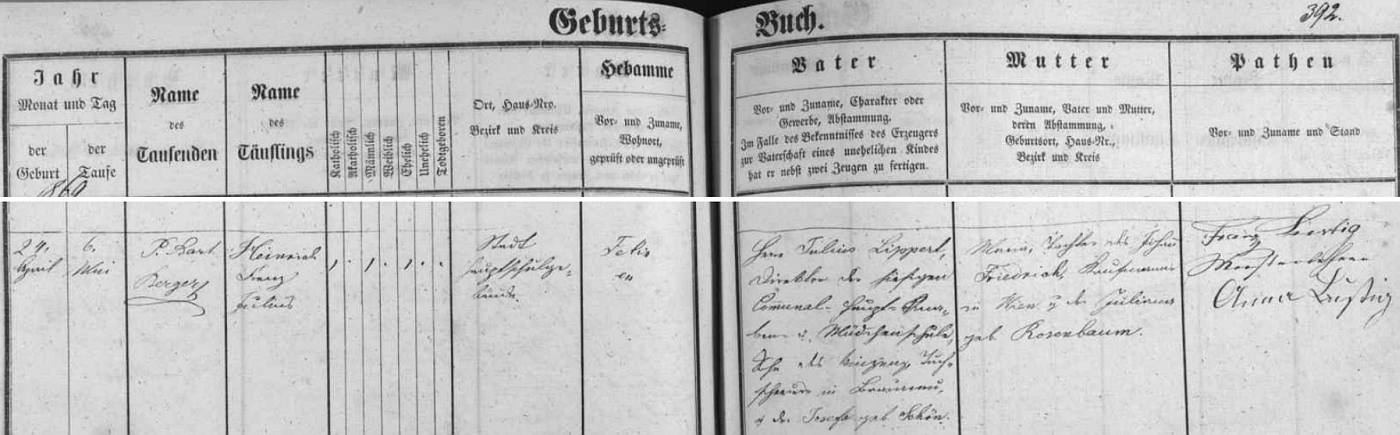 Geburts-Buch.
392.
Jahr
Monat und Tag
der Geburt
der Taufe
1869
Name
des
Taufenden
Name
des
Täuflings
Katholisch
Akatholisch
Männlich
Weiblich
Ehelich
Unehelich
Todtgeboren
Ort, Haus-Nro.
Bezirk und Kreis
Hebamme
Vor- und Zuname,
Wohnort,
geprüft oder ungeprüft
Vater
Vor- und Zuname, Charakter oder
Gewerbe, Abstammung.
Im Falle des Bekenntnisses des Erzeugers
zur Vaterschaft eines unehelichen Kindes
hat er nebst zwei Zeugen zu fertigen.
Mutter
Vor- und Zuname, Vater und Mutter,
deren Abstammung,
Geburtsort, Haus-Nr.,
Bezirk und Kreis
Pathen
Vor- und Zuname und Stand
April
6.
Mai
P. Bart
Berger
Heinrich
Franz
Julius
Stadt
Hauptschulge-
bäude
Herr Julius Lippert,
Direktor der hiesigen
Comunal-Haupt-Kna-
ben u. Mädchenschule,
in Braunau,
u der Josefa geb Schön.
Maria, Tochter des Johann
Friedrich, Kaufmanns
in Wien u der Juliana
geb Rosenbaum.
Franz
Anna Lustig